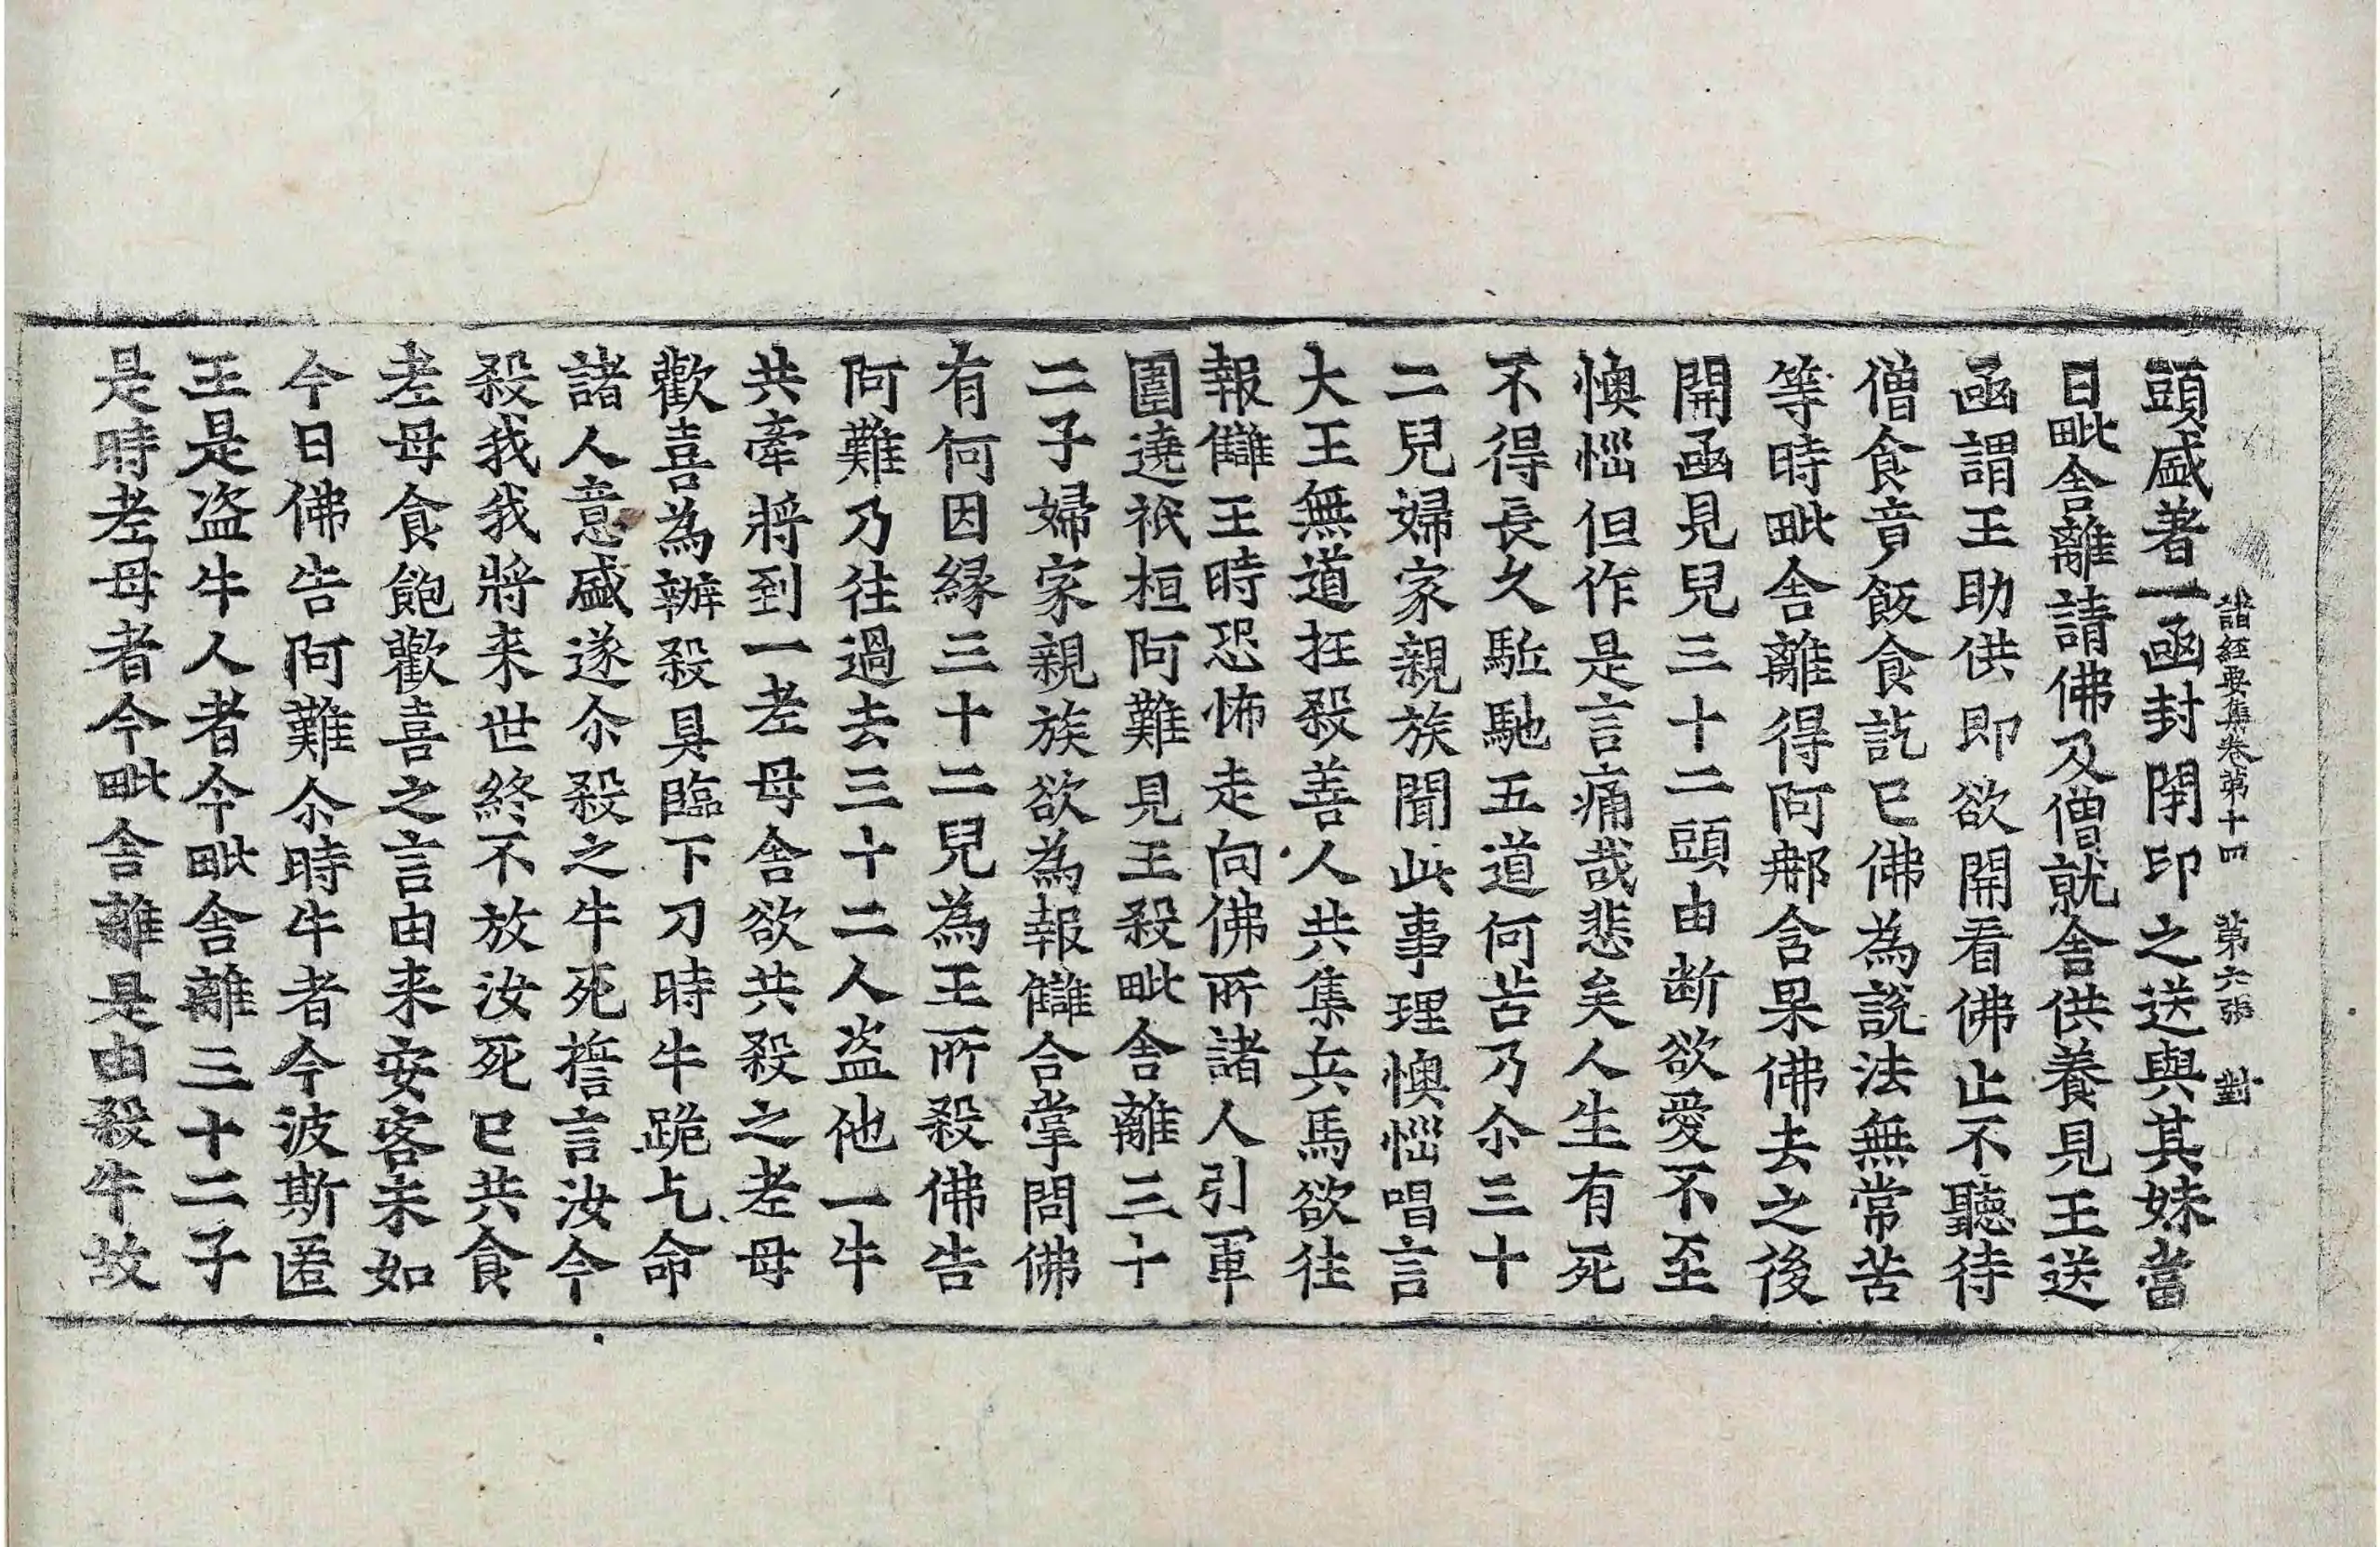 諸經要集卷第十四　第六張　對
頭盛著一函封閇印之送與其妹當
日毗舍離請佛及僧就舍供養見王送
函謂王助供即欲開看佛止不聽待
僧食竟飯食訖已佛為說法無常苦
等時毗舍離得阿那含果佛去之後
開函見兒三十二頭由断欲愛不至
懊惱但作是言痛哉悲矣人生有死
不得長久駈馳五道何苦乃尒三十
二兒婦家親族聞此事理懊惱唱言
大王無道抂殺善人共集兵馬欲往
報讎王時恐怖走向佛所諸人引軍
圍遶祇桓阿難見王殺毗舍離三十
二子婦家親族欲為報讎合掌問佛
有何因緣三十二兒為王所殺佛告
阿難乃往過去三十二人盗他一牛
共牽將到一老母舍欲共殺之老母
歡喜為辦殺具臨下刀時牛跪乞命
諸人意盛遂尒殺之牛死誓言汝今
殺我我將来世終不放汝死已共食
老母食飽歡喜之言由来安客未如
今日佛告阿難尒時牛者今波斯匿
王是盗牛人者今毗舍離三十二子
是時老母者今毗舍離是由殺牛故